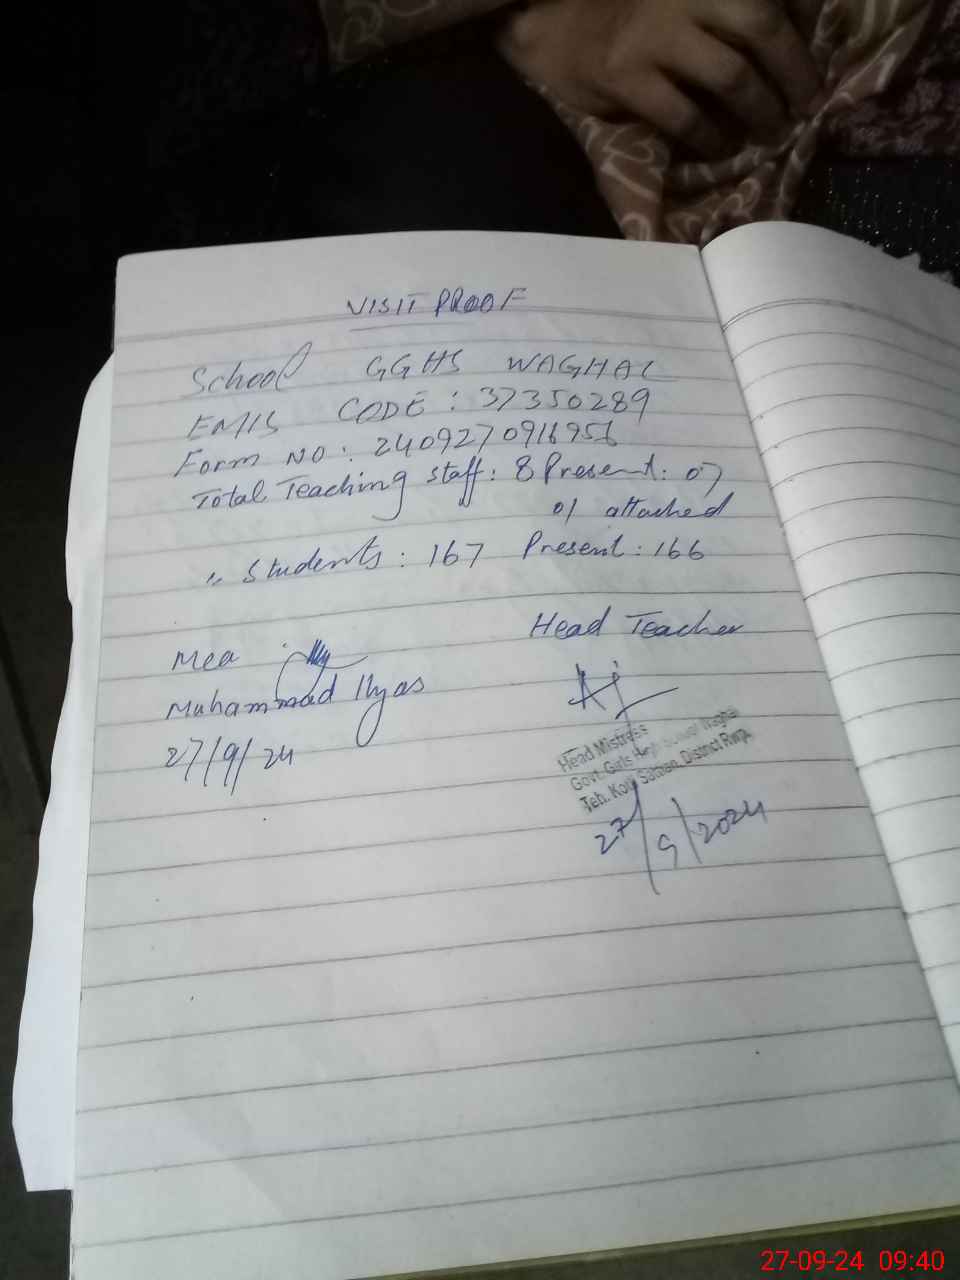 VISIT PROOF
School GGHS WAGHAL
EMIS CODE : 37350289
Form NO : 2409270916956
Total Teaching staff : 8 Present : 07
01 attached
" Students : 167 Present : 166
Head Teacher
Mea :
Muhammad Ilyas
27/9/24
Head Mistress
Govt. Girls High School Waghal
Teh. Kotli Sattian District Rwp.
27/9/2024
27-09-24 09:40